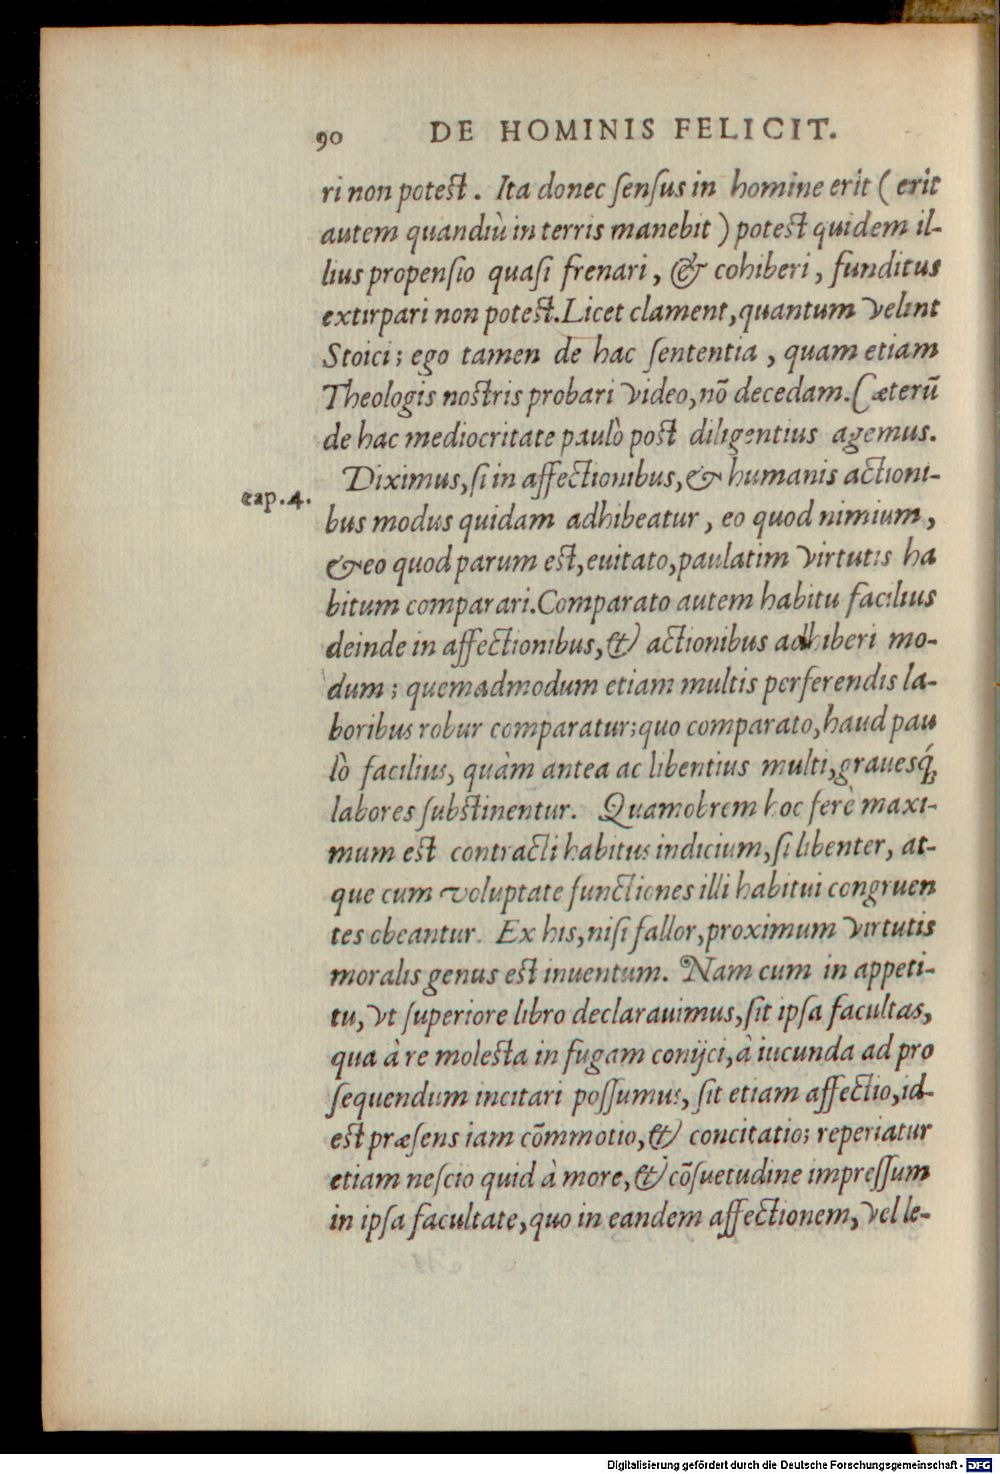 90 DE HOMINIS FELICIT.
ri non potest. Ita donec sensus in homine erit ( erit
autem quandiù in terris manebit ) potest quidem il-
lius propensio quasi frenari, & cohiberi, funditus
extirpari non potest. Licet clament, quantum velint
Stoici; ego tamen de hac sententia, quam etiam
Theologis nostris probari video, nõ decedam. Cæterũ
de hac mediocritate paulò post diligentius agemus.
cap. 4.
Diximus, si in affectionibus, & humanis actioni-
bus modus quidam adhibeatur, eo quod nimium,
& eo quod parum est, euitato, paulatim virtutis ha
bitum comparari. Comparato autem habitu facilius
deinde in affectionibus, & actionibus adhiberi mo-
dum; quemadmodum etiam multis perferendis la-
boribus robur comparatur; quo comparato, haud pau
lò facilius, quàm antea ac libentius multi, grauesq́;
labores substinentur. Quamobrem hoc ferè maxi-
mum est contracti habitus indicium, si libenter, at-
que cum voluptate functiones illi habitui congruen
tes obeantur. Ex his, nisi fallor, proximum virtutis
moralis genus est inuentum. Nam cum in appeti-
tu, vt superiore libro declarauimus, sit ipsa facultas,
qua à re molesta in fugam conijci, à iucunda ad pro
sequendum incitari possumus, sit etiam affectio, id-
est præsens iam cõmmotio, & concitatio; reperiatur
etiam nescio quid à more, & cõsuetudine impressum
in ipsa facultate, quo in eandem affectionem, vel le-
Digitalisierung gefördert durch die Deutsche Forschungsgemeinschaft - DFG